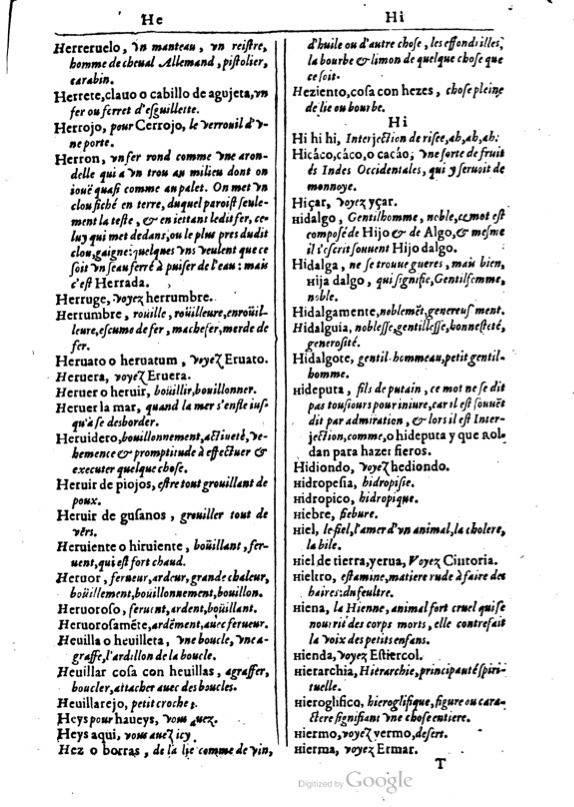 He
Herreruelo, vn manteau, vn reistre,
homme de cheual Allemand, pistolier,
carabin.
Herrete, clauo o cabillo de agujeta, vn
fer ou ferret d'esguillette.
Herrojo, pour Cerrojo, le verrouil d'v-
ne porte.
Herron, vn fer rond comme vne aron-
delle qui a vn trou au milieu dont on
iouë quasi comme au palet. On met vn
clou fiché en terre, duquel paroist seule-
ment la teste, & en iettant ledit fer, ce-
luy qui met dedans, ou le plus pres dudit
clou, gaigne: quelques vns veulent que ce
soit vn seau ferré à puiser de l'eau: mais
c'est Herrada.
Herruge, voyez herrumbre.
Herrumbre, rouille, roüilleure, enroüil-
leure, escume de fer, machefer, merde de
fer.
Heruato o heruatum, voyez Eruato.
Heruera, voyez Eruera.
Heruer o heruir, boüillir, bouillonner.
Heruer la mar, quand la mer s'enfle ius-
qu'à se desborder.
Heruidero, bouillonnement, actiueté, ve-
hemence & promptitude à effectuer &
executer quelque chose.
Heruir de piojos, estre tout grouillant de
poux.
Heruir de gusanos, grouiller tout de
vers.
Heruiente o hiruiente, boüillant, fer-
uent, qui est fort chaud.
Heruor, ferueur, ardeur, grande chaleur,
boüillement, boüillonnement, bouillon.
Heruoroso, feruent, ardent, boüillant.
Heruorosaméte, ardément, auec ferueur.
Heuilla o heuilleta, vne boucle, vne a-
graffe, l'ardillon de la boucle.
Heuillar cosa con heuillas, agraffer,
boucler, attacher auec des boucles.
Heuillarejo, petit crochet.
Heys pour haueys, vous auez.
Heys aqui, vous auez icy.
Hez o borras, de la lie comme de vin,
Hi
d'huile ou d'autre chose, les effondrilles,
la bourbe & limon de quelque chose que
ce soit.
Heziento, cosa con hezes, chose pleine
de lie ou bourbe.
Hi
Hi hi hi, Interjection de risee, ah, ah, ah:
Hicáco, cáco, o cacáo; vne sorte de fruit
és Indes Occidentales, qui y seruoit de
monnoye.
Hiçar, voyez yçar.
Hidalgo, Gentilhomme, noble, ce mot est
composé de Hijo & de Algo, & mesme
il s'escrit souuent Hijo dalgo.
Hidalga, ne se trouue gueres, mais bien,
Hija dalgo, qui signifie, Gentilfemme,
noble.
Hidalgamente, noblemēt, genereusement.
Hidalguia, noblesse, gentillesse, honnesteté,
generosité.
Hidalgote, gentil-hommeau, petit gentil-
homme.
Hideputa, fils de putain, ce mot ne se dit
pas tousiours pour iniure, car il est souuēt
dit par admiration, & lors il est Inter-
jection, comme, o hideputa y que Rol-
dan para hazer fieros.
Hidiondo, voyez hediondo.
Hidropesia, hidropisie.
Hidropico, hidropique.
Hiebre, fiebure.
Hiel, le fiel, l'amer d'vn animal, la cholere,
la bile.
Hiel de tierra, yerua, Voyez Cintoria.
Hieltro, estamine, matiere rude à faire des
haires: du feultre.
Hiena, la Hienne, animal fort cruel qui se
nourrit des corps morts, elle contrefait
la voix des petits enfans.
Hienda, voyez Estiercol.
Hierarchia, Hierarchie, principauté spiri-
tuelle.
Hieroglifico, hieroglifique, figure ou cara-
ctere signifiant vne chose entiere.
Hiermo, voyez yermo, desert.
Hierma, voyez Ermar.
T
Digitized by Google